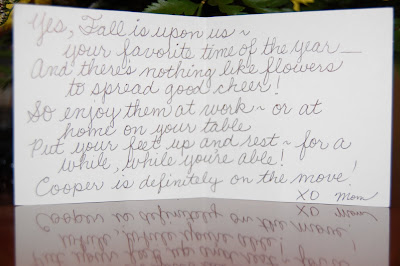 Yes, Fall is upon us ~
your favorite time of the year —
And there's nothing like flowers
to spread good cheer!
So enjoy them at work ~ or at
home on your table
Put your feet up and rest ~ for a
while, while you're able!
Cooper is definitely on the move!
XO Mom